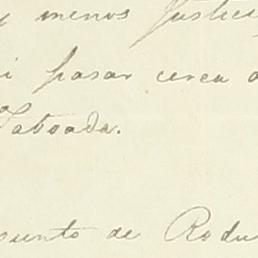 y menos justici
i pasar cerca d
Taboada.
sunto de Rodu